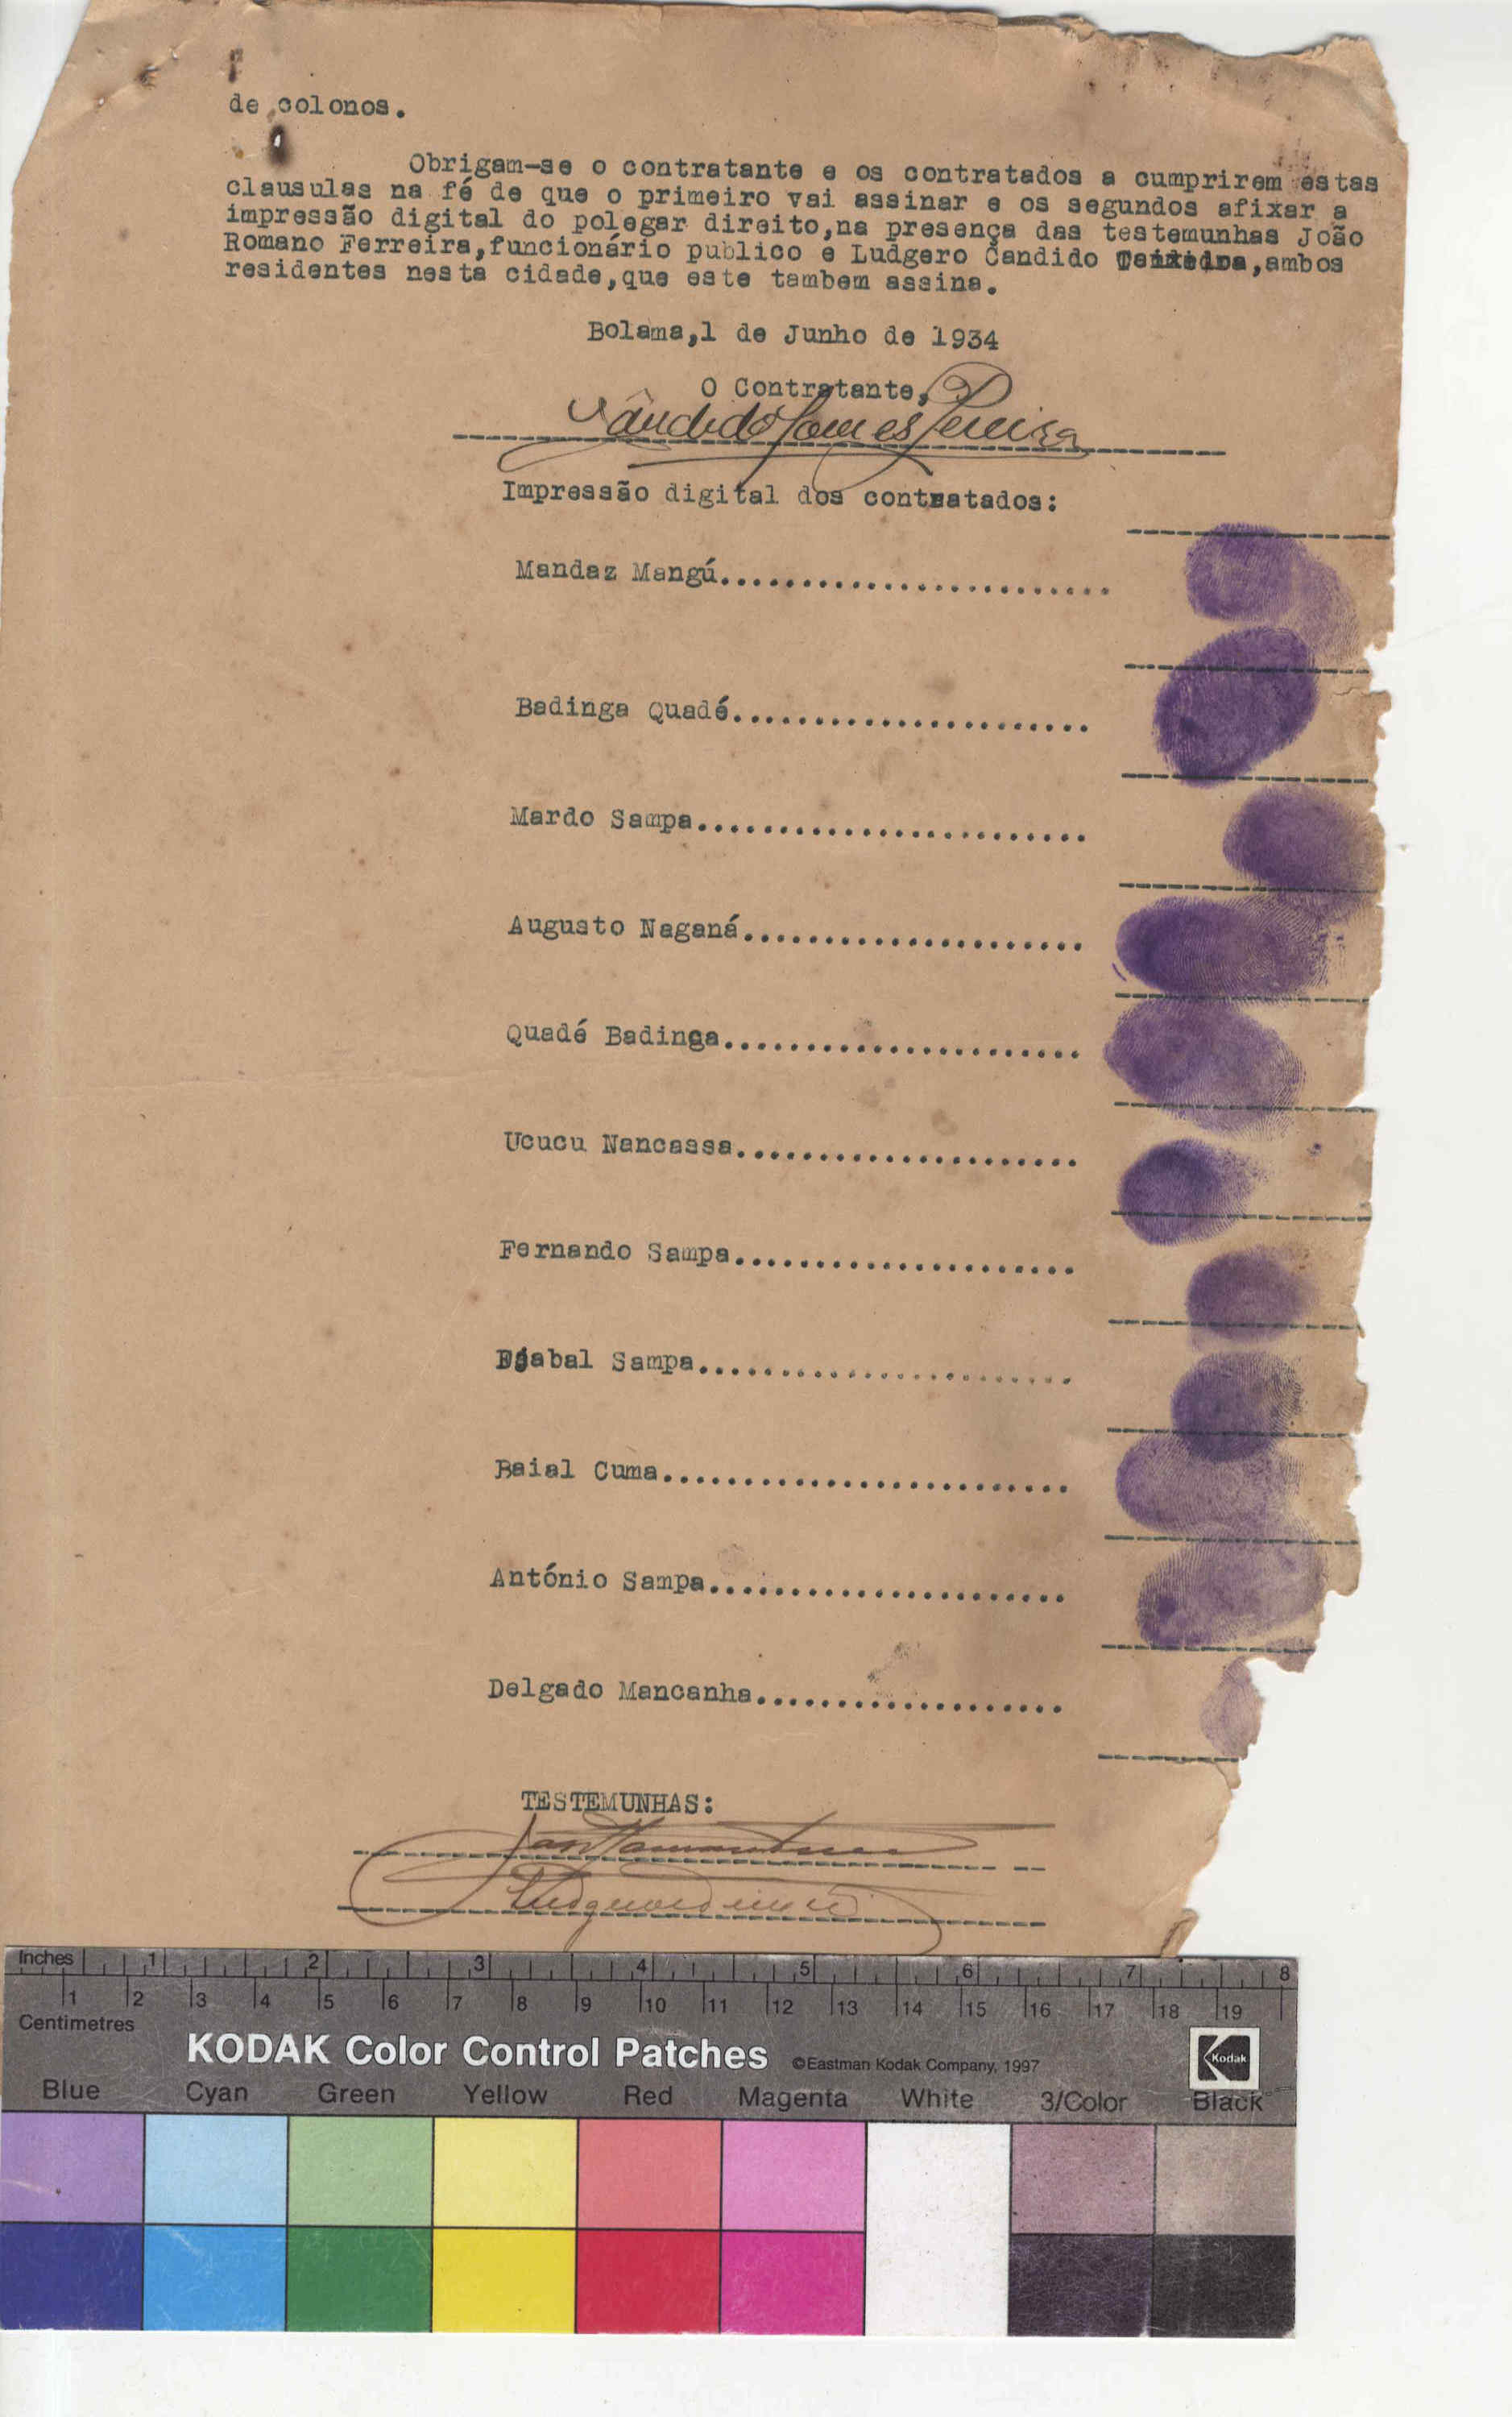 de colonos.
Obrigam-se o contratante e os contratados a cumprirem estas
clausulas na fé de que o primeiro vai assinar e os segundos afixar a
impressão digital do polegar direito,na presença das testemunhas João
Romano Ferreira,funcionário publico e Ludgero Candido ,ambos
residentes nesta cidade,que este tambem assina.
Bolama,1 de Junho de 1934
O Contratante,
Cândido Gomes Pereira
Impressão digital dos contratados:
Mandaz Mangú..........................
Badinga Quadé......................
Mardo Sampa........................
Augusto Naganá.....................
Quadé Badinga......................
Ucucu Nancassa.....................
Fernando Sampa.....................
Sampa.......................
Baial Cuma.........................
António Sampa......................
Delgado Mancanha...................
TESTEMUNHAS:
Inches 1 2 3 4 5 6 7 8
1 2 3 4 5 6 7 8 9 10 11 12 13 14 15 16 17 18 19
Centimetres
KODAK Color Control Patches ©Eastman Kodak Company, 1997 Kodak
Blue Cyan Green Yellow Red Magenta White 3/Color Black